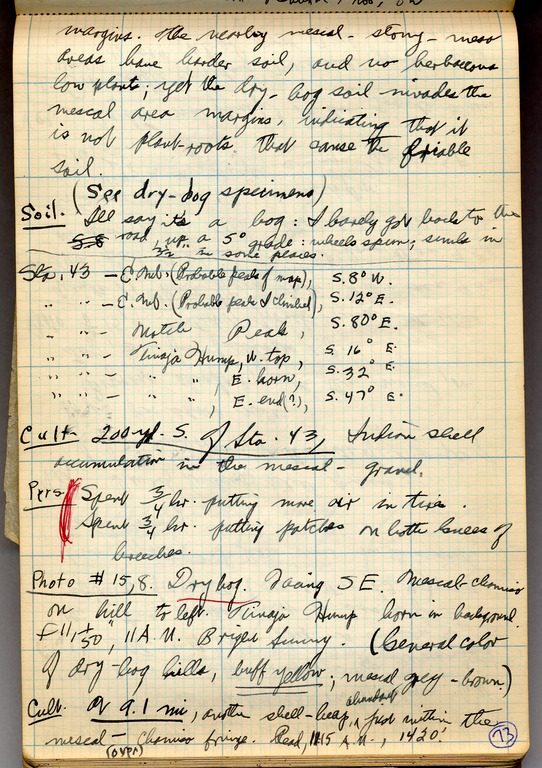 margins. The nearby mescal-stony-mesa
areas have harder soil, and no herbaceous
low plants; yet the dry-bog soil invades the
mescal area margins, indicating that it
is not plant-roots that cause the friable
soil.
(See dry-bog specimens)
Soil. I'll say it's a bog: I barely got back to the
road, up a 5° grade: wheels spun; sunk in
in some places.
Sta. 43 - E. Mt. (Probable peak of map), S. 8° W.
" " - E. Mt. (Probable peak I climbed), S. 12° E.
" " - Notch Peak, S. 80° E.
" " - Tinaja Hump, W. top, S. 16° E.
" " - " " , E. horn, S. 32° E.
" " - " " , E. end (?), S. 47° E.
Cult. 200 yd. S. of Sta. 43, Indian shell
accumulation in the mescal-gravel.
Pers. Spent 3/4 hr. putting more air in tires.
Spent 3/4 hr. putting patches on both knees of
breeches.
Photo # 15, 8. Dry bog. Facing SE. Mescal-chamiso
on hill to left. Tinaja Hump horn in background.
F 11, 1/50, 11 A.M. Bright Sunny. (General color
of dry-bog hills, buff yellow; mescal grey-brown.)
Cult. At 9.1 mi, another shell-heap, abundant just within the
mescal-chamiso fringe. Read, 11:15 A.M., 1420'.
(over)
73